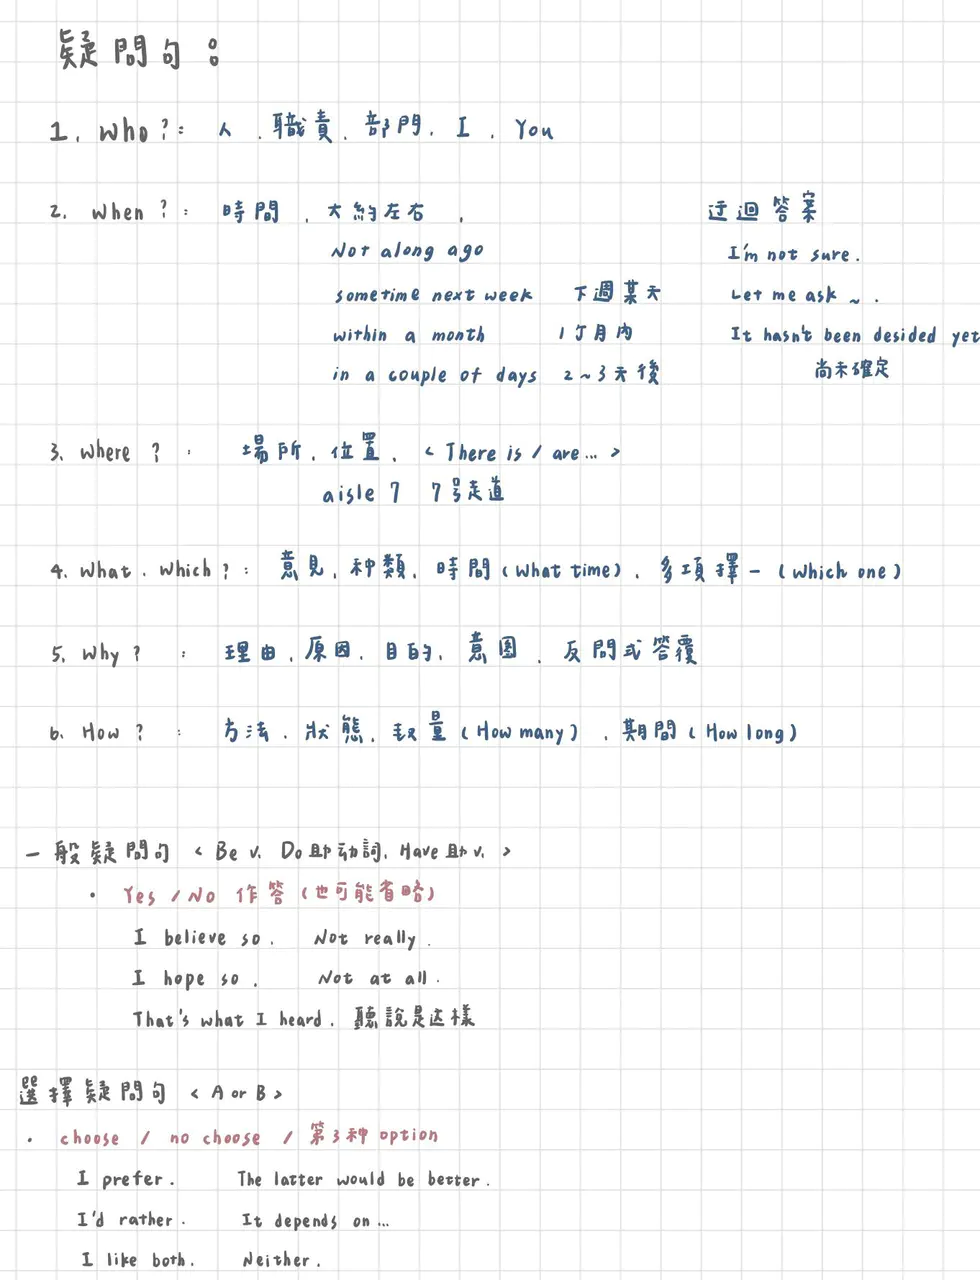 疑問句：
1. Who?： 人、職責、部門、I、You
2. When?： 時間、大約左右， 迂迴答案
Not along ago I'm not sure.
sometime next week 下週某天 Let me ask ~.
within a month 1个月內 It hasn't been desided yet
in a couple of days 2~3天後 尚未確定
3. Where?： 場所、位置、<There is / are...>
aisle 7 7号走道
4. What、Which?： 意見、种類、時間(What time)、多項擇一(Which one)
5. Why?： 理由、原因、目的、意图、反問或答覆
6. How?： 方法、狀態、數量(How many)、期間(How long)
一般疑問句 <Be v. Do助动詞, Have助v.>
• Yes / No 作答(也可能省略)
I believe so. Not really.
I hope so. Not at all.
That's what I heard. 聽說是这樣
選擇疑問句 <A or B>
• choose / no choose / 第3种 option
I prefer. The latter would be better.
I'd rather. It depends on...
I like both. Neither.